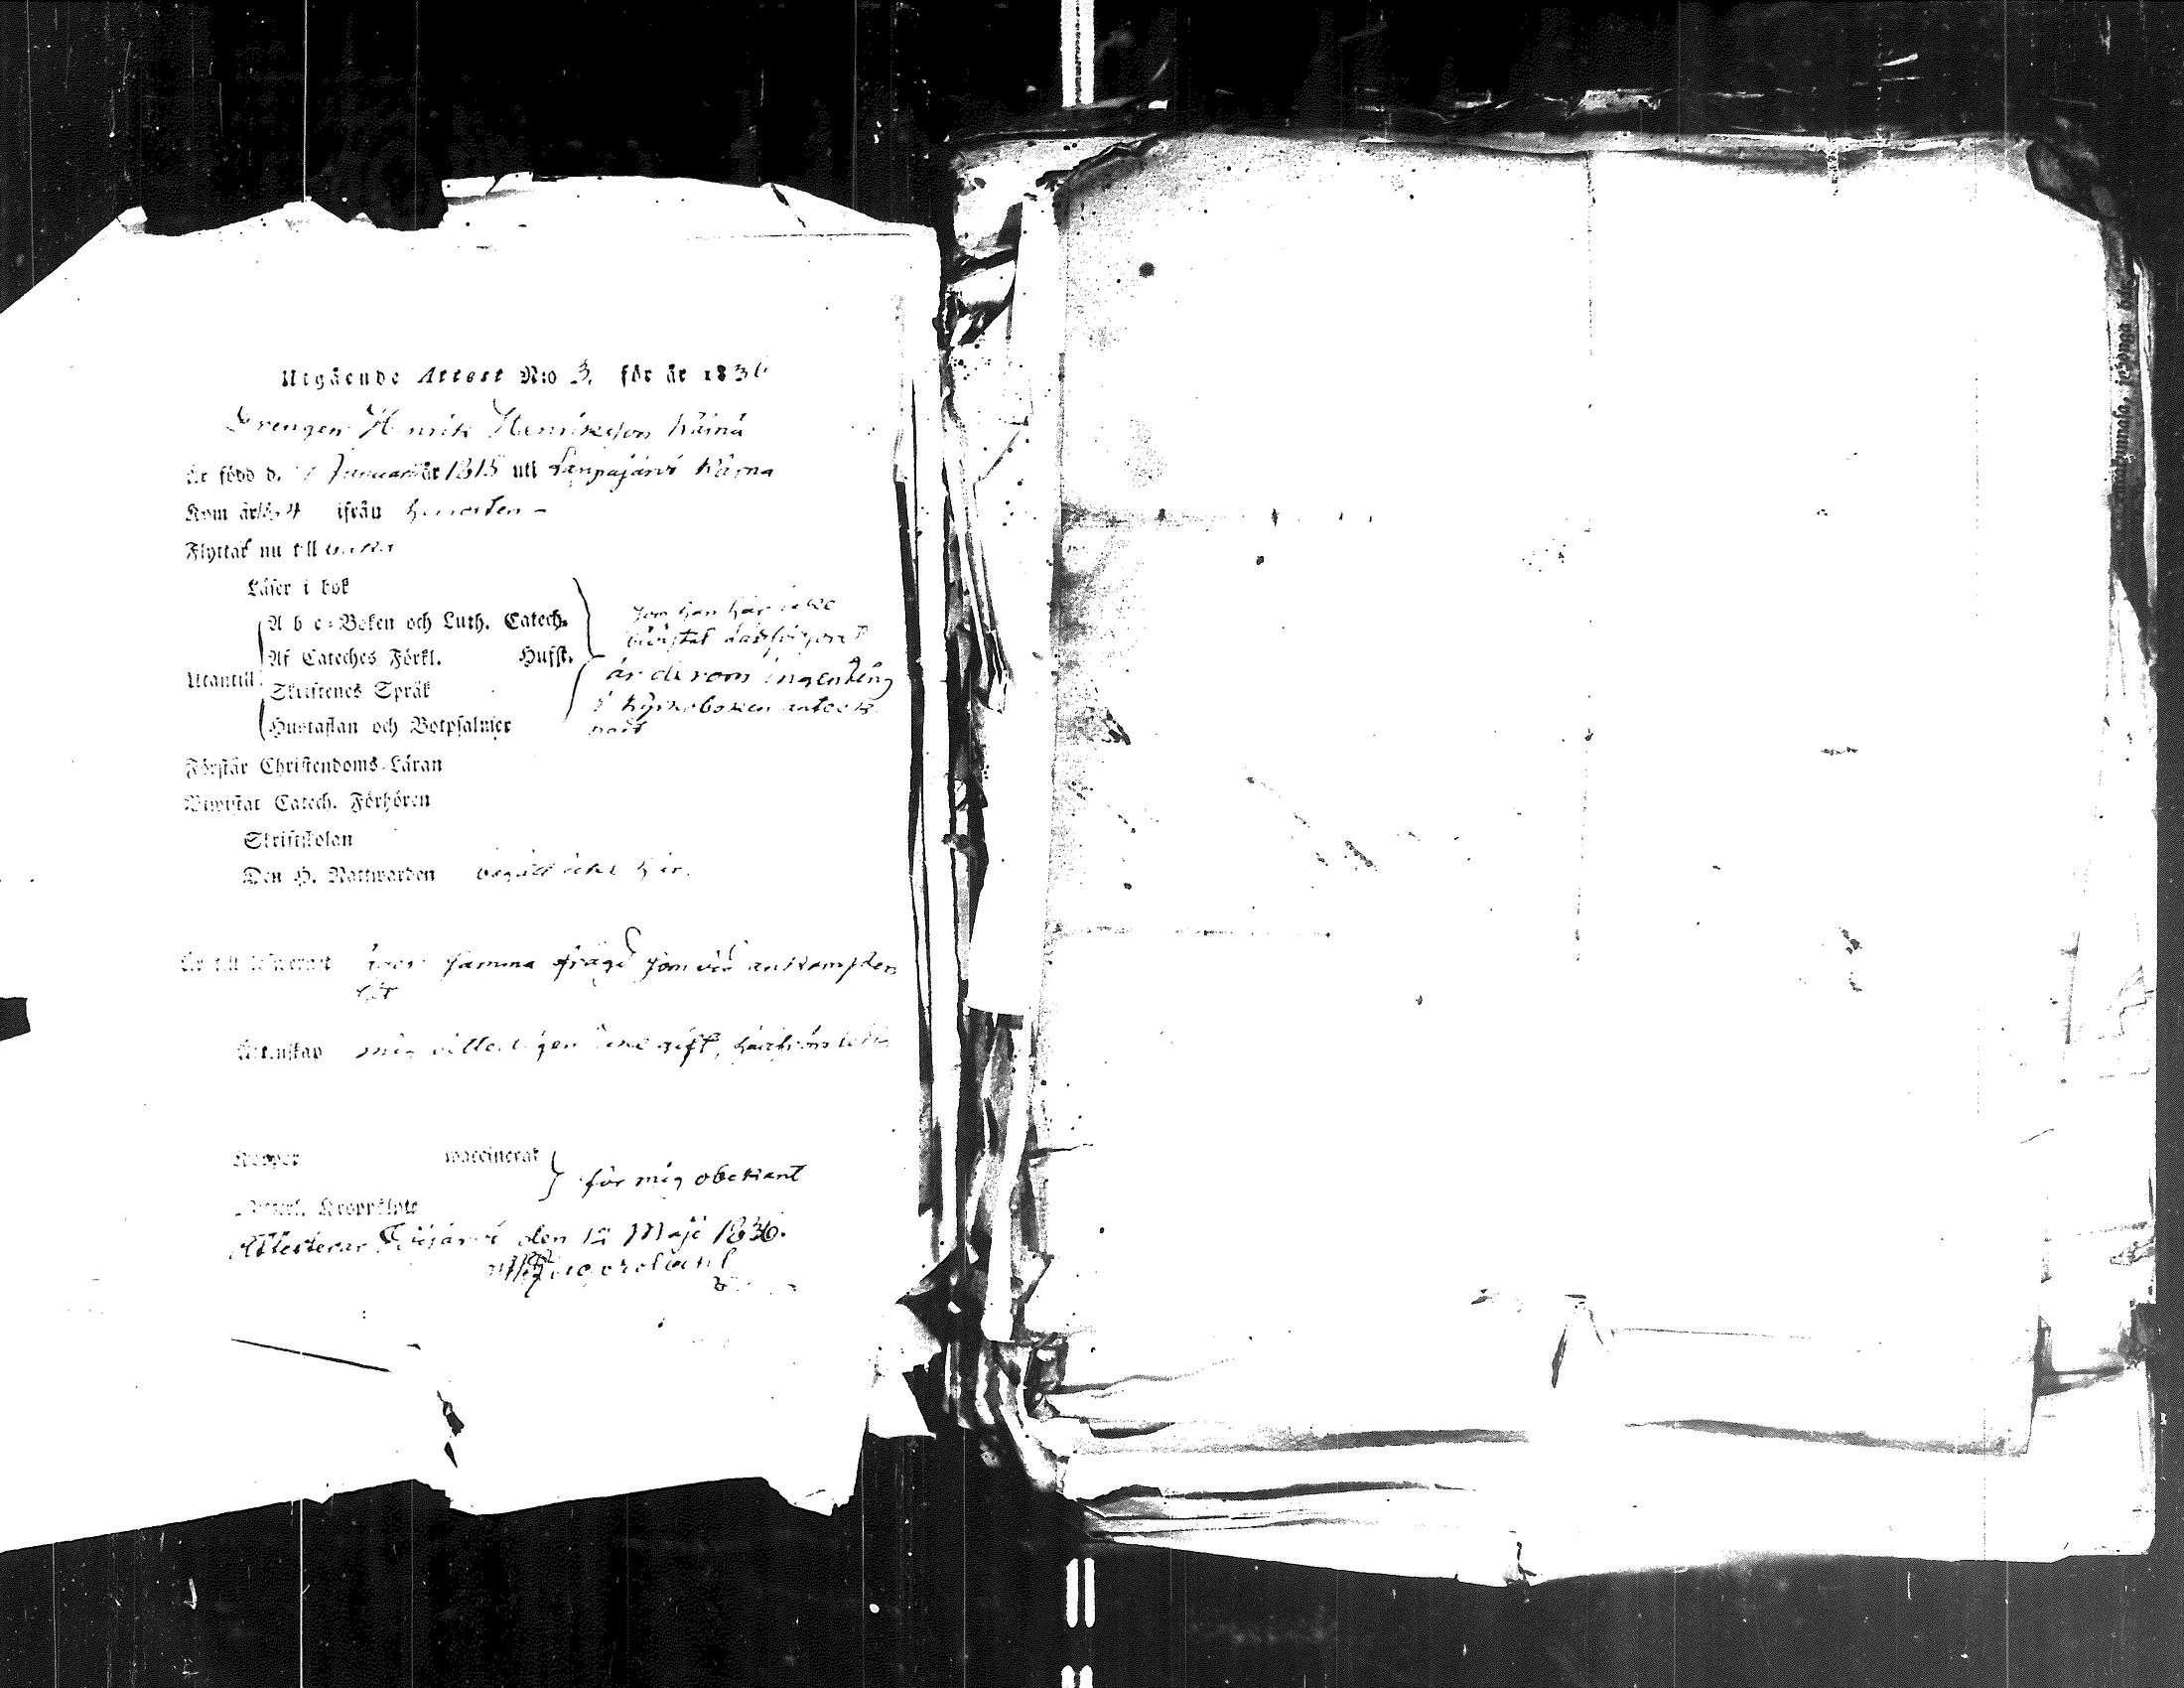 Utgående Attest N:o 3. för år 1836
Drengen Henrik Henriksson Kärnä
Är född d. 7 Januari år 1815 uti Lappajärvi Kärnä
Kom år 1834 ifrån hemorten -
Flyttar nu till
Läser i bok
A b c-Boken och Luth. Catech.
Af Cateches Förkl. Hufst.
Utantill
Skriftenes Språk
Hustaflan och Botpsalmer
som han här icke
bivistat läsförhöret
är derom ingenting
i Kyrkoboken anteck
nadt
Förstår Christendoms-Läran
Biwistat Catech. Förhören
Skriftskolan
Den H. Nattwarden begått icke här.
Är till lefwernet samma frägd som vid ankomsten
hit
Äktenskap mig vitterligen icke gift,
Koppor vaccinerat
för mig obekant
Kroppslyte
Attesterar den 12 Maji 1836.